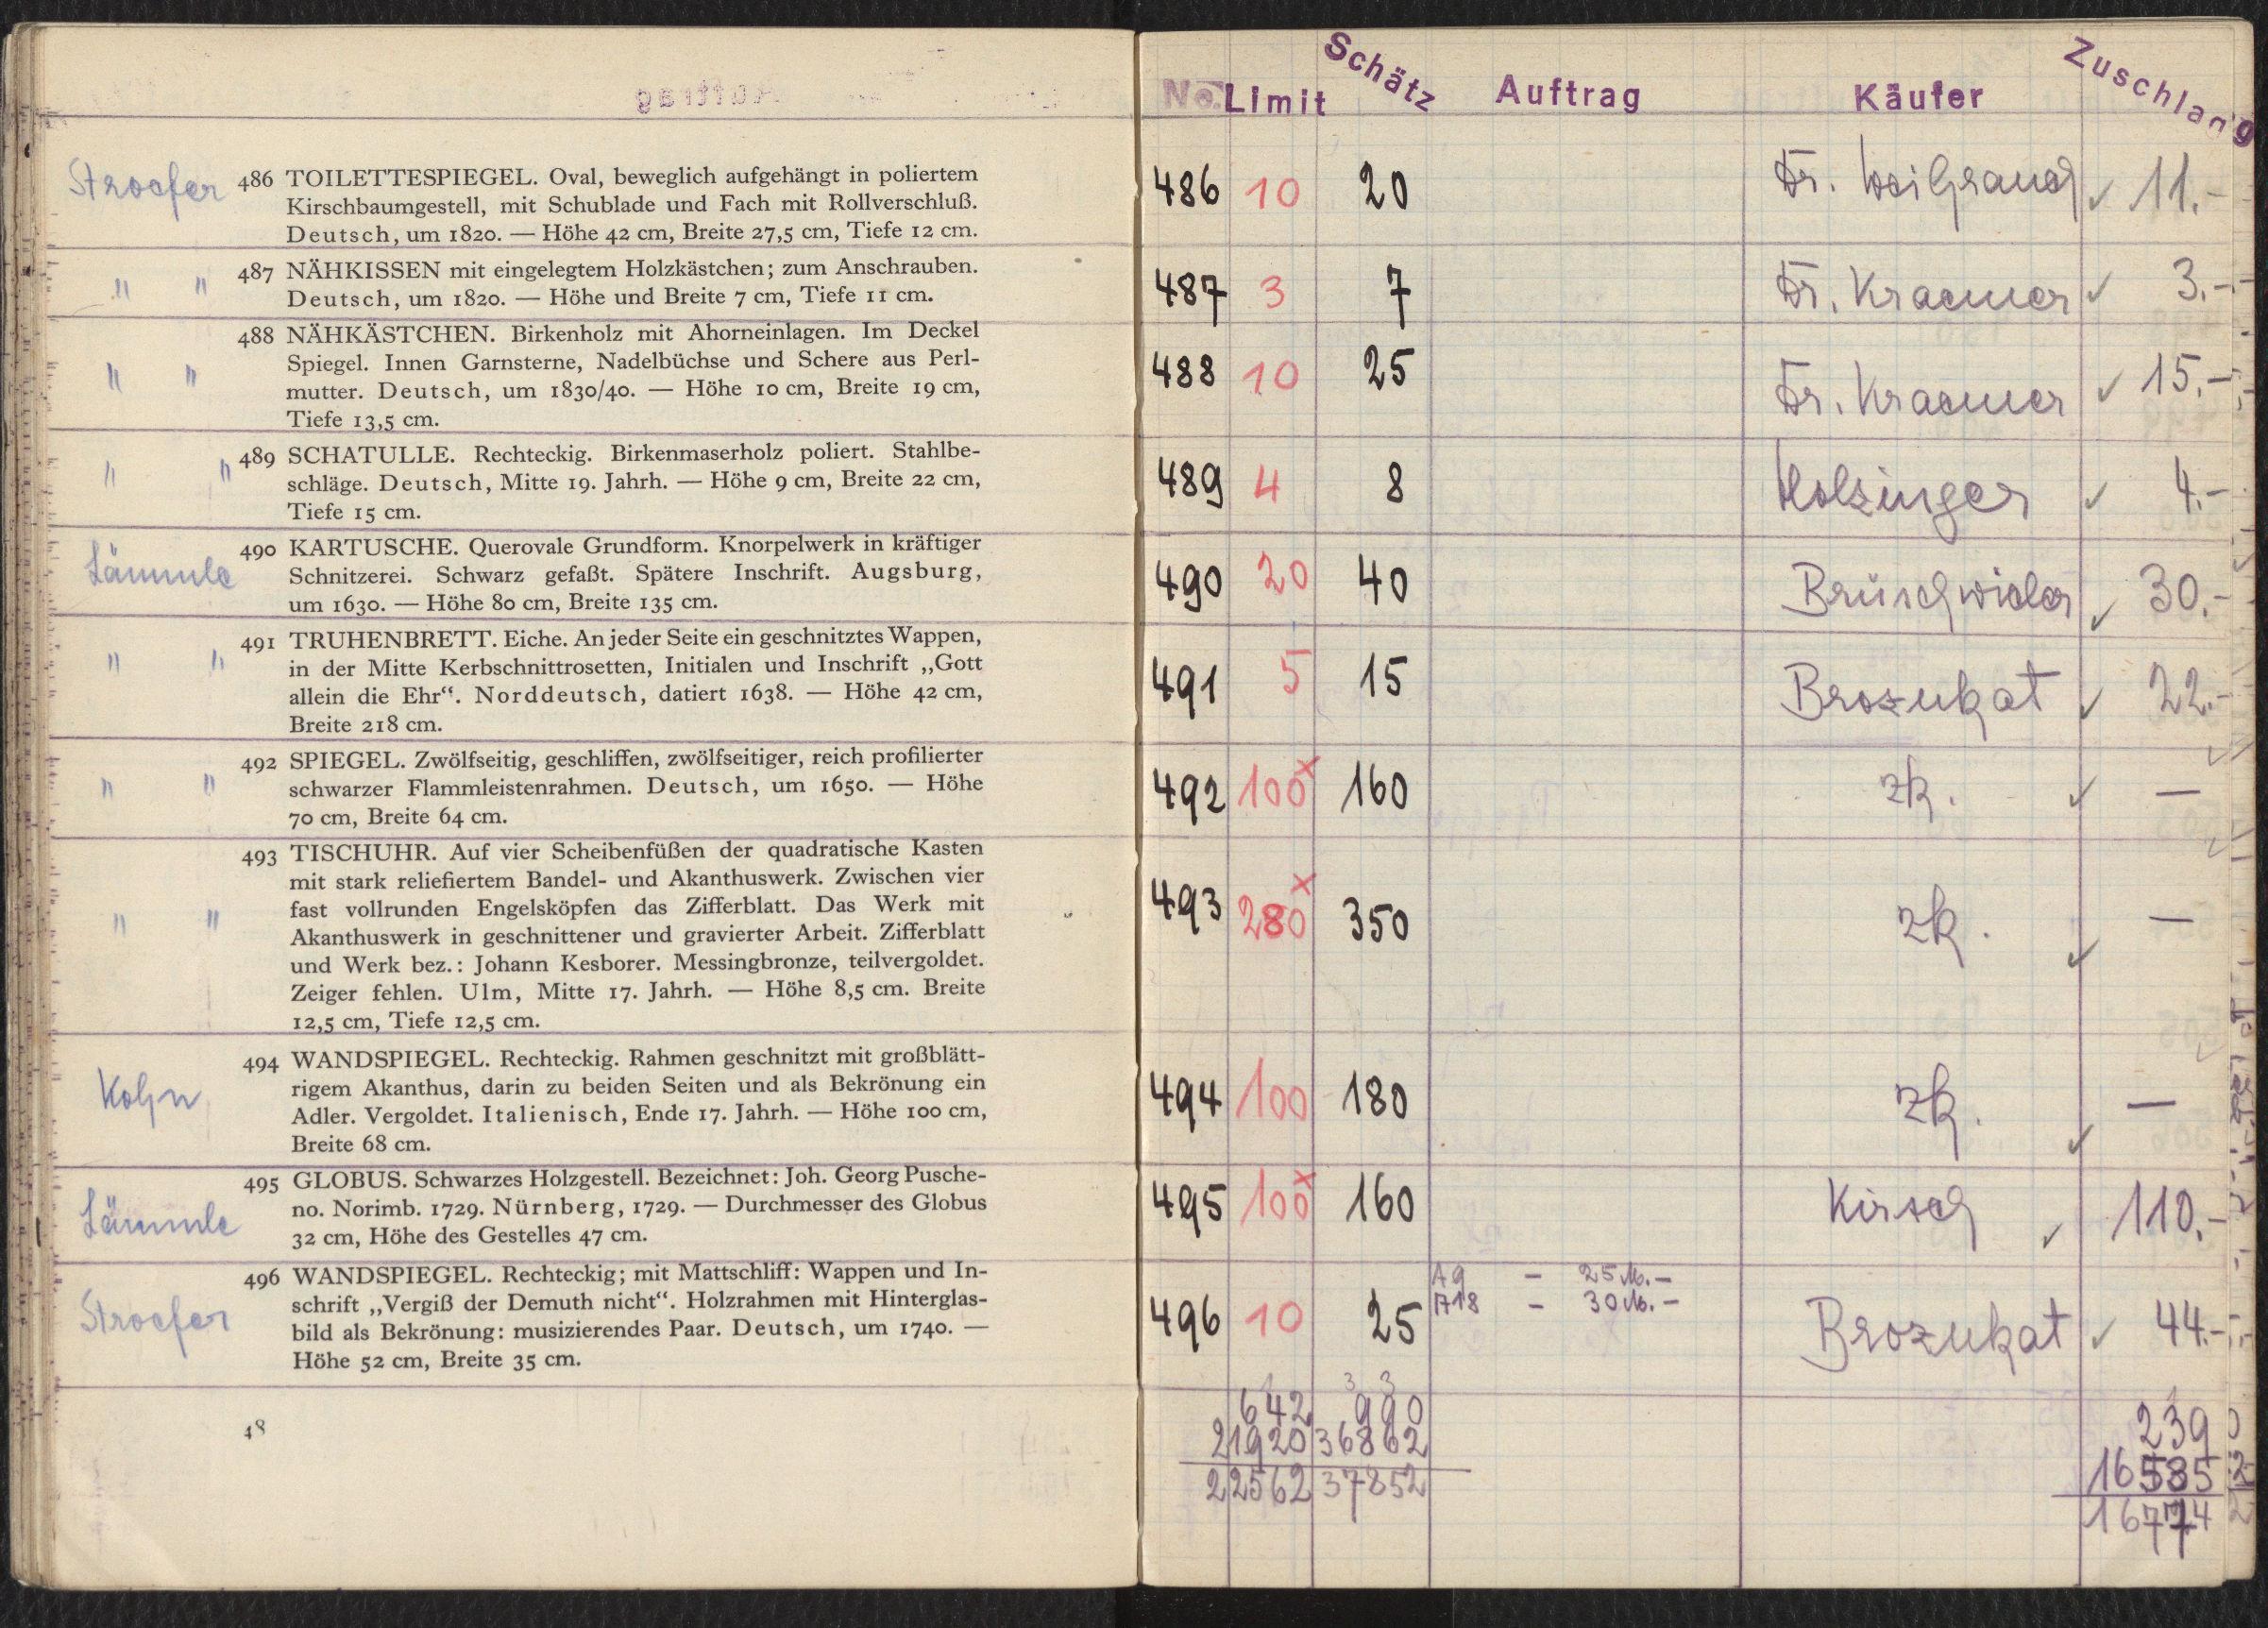 Stroefer 486 TOILETTESPIEGEL. Oval, beweglich aufgehängt in poliertem
Kirschbaumgestell, mit Schublade und Fach mit Rollverschluß.
Deutsch, um 1820. — Höhe 42 cm, Breite 27,5 cm, Tiefe 12 cm.
" " 487 NÄHKISSEN mit eingelegtem Holzkästchen; zum Anschrauben.
Deutsch, um 1820. — Höhe und Breite 7 cm, Tiefe 11 cm.
" " 488 NÄHKÄSTCHEN. Birkenholz mit Ahorneinlagen. Im Deckel
Spiegel. Innen Garnsterne, Nadelbüchse und Schere aus Perl-
mutter. Deutsch, um 1830/40. — Höhe 10 cm, Breite 19 cm,
Tiefe 13,5 cm.
" " 489 SCHATULLE. Rechteckig. Birkenmaserholz poliert. Stahlbe-
schläge. Deutsch, Mitte 19. Jahrh. — Höhe 9 cm, Breite 22 cm,
Tiefe 15 cm.
Lämmle 490 KARTUSCHE. Querovale Grundform. Knorpelwerk in kräftiger
Schnitzerei. Schwarz gefaßt. Spätere Inschrift. Augsburg,
um 1630. — Höhe 80 cm, Breite 135 cm.
" " 491 TRUHENBRETT. Eiche. An jeder Seite ein geschnitztes Wappen,
in der Mitte Kerbschnittrosetten, Initialen und Inschrift „Gott
allein die Ehr“. Norddeutsch, datiert 1638. — Höhe 42 cm,
Breite 218 cm.
" " 492 SPIEGEL. Zwölfseitig, geschliffen, zwölfseitiger, reich profilierter
schwarzer Flammleistenrahmen. Deutsch, um 1650. — Höhe
70 cm, Breite 64 cm.
" " 493 TISCHUHR. Auf vier Scheibenfüßen der quadratische Kasten
mit stark reliefiertem Bandel- und Akanthuswerk. Zwischen vier
fast vollrunden Engelsköpfen das Zifferblatt. Das Werk mit
Akanthuswerk in geschnittener und gravierter Arbeit. Zifferblatt
und Werk bez.: Johann Kesborer. Messingbronze, teilvergoldet.
Zeiger fehlen. Ulm, Mitte 17. Jahrh. — Höhe 8,5 cm. Breite
12,5 cm, Tiefe 12,5 cm.
Kohn 494 WANDSPIEGEL. Rechteckig. Rahmen geschnitzt mit großblätt-
rigem Akanthus, darin zu beiden Seiten und als Bekrönung ein
Adler. Vergoldet. Italienisch, Ende 17. Jahrh. — Höhe 100 cm,
Breite 68 cm.
Lämmle 495 GLOBUS. Schwarzes Holzgestell. Bezeichnet: Joh. Georg Pusche-
no. Norimb. 1729. Nürnberg, 1729. — Durchmesser des Globus
32 cm, Höhe des Gestelles 47 cm.
Stroefer 496 WANDSPIEGEL. Rechteckig; mit Mattschliff: Wappen und In-
schrift „Vergiß der Demuth nicht“. Holzrahmen mit Hinterglas-
bild als Bekrönung: musizierendes Paar. Deutsch, um 1740. —
Höhe 52 cm, Breite 35 cm.
48
No. Limit Schätz Auftrag Käufer Zuschlang
486 10 20 Dr. Weihrauch ✓ 11.-
487 3 7 Dr. Kraemer ✓ 3.-
488 10 25 Dr. Kraemer ✓ 15.-
489 4 8 Holzinger ✓ 4.-
490 20 40 Brüschwieler ✓ 30.-
491 5 15 Brozukat ✓ 22.-
492 100x 160 zk. ✓ —
493 280x 350 zk. ✓ —
494 100 180 zk. ✓ —
495 100x 160 Kirsch ✓ 110.-
A9 — 25 M.—
A18 — 30 M.—
496 10 25 Brozukat ✓ 44.-
642 990 239
21920 36862 16535
22562 37852 16774